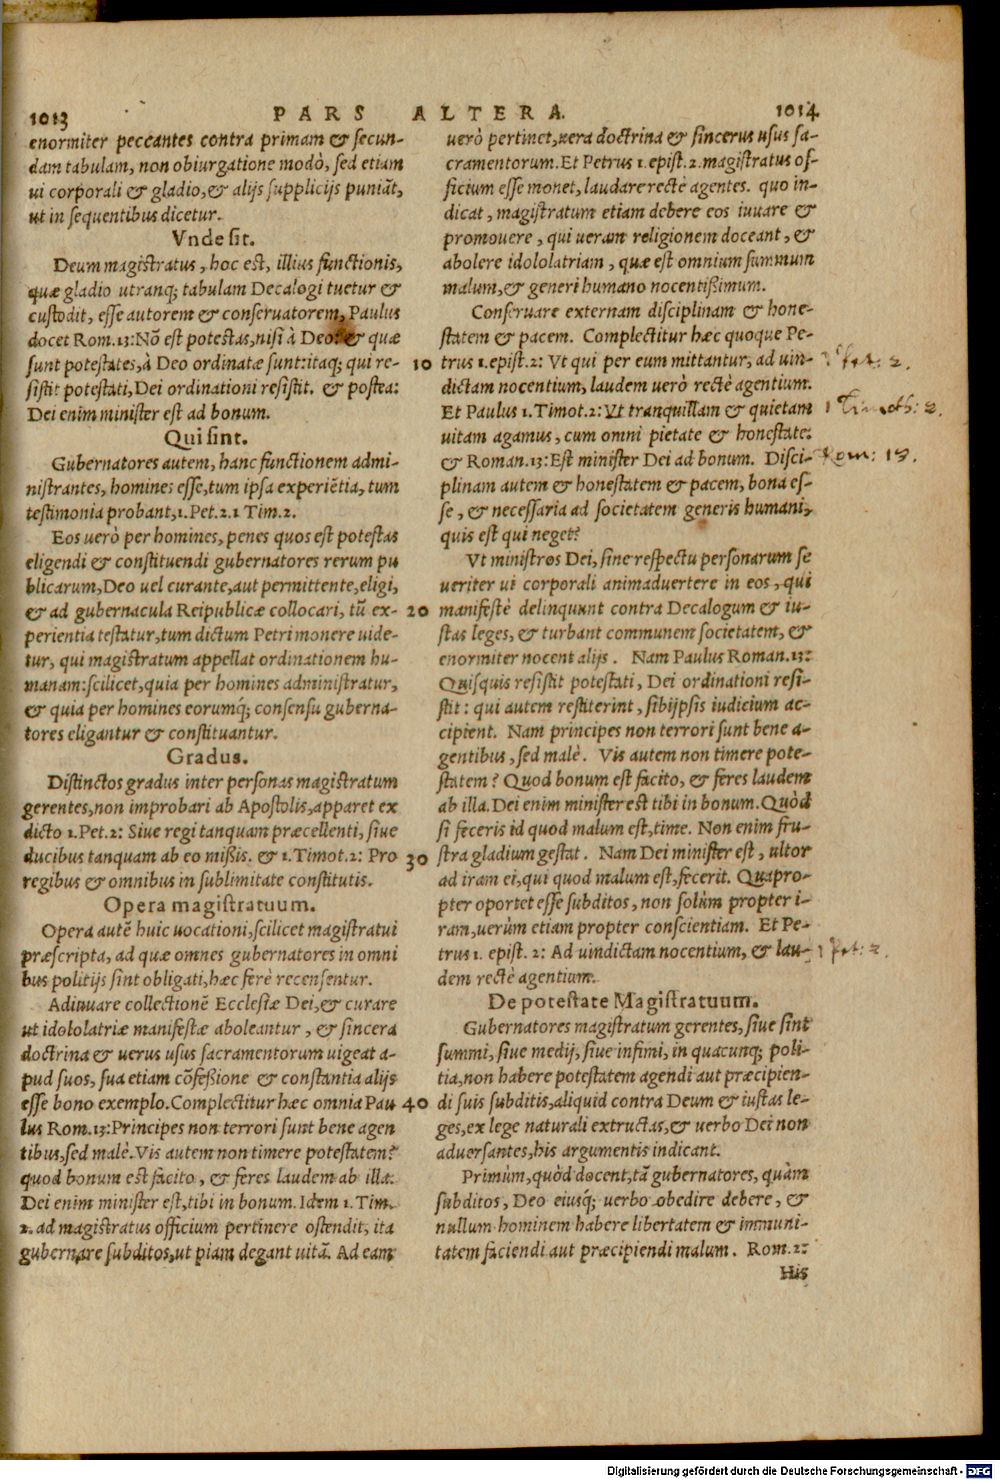 1013 PARS ALTERA. 1014
enormiter peccantes contra primam & secun-
dam tabulam, non obiurgatione modò, sed etiam
ui corporali & gladio, & alijs supplicijs puniāt,
ut in sequentibus dicetur.
Vnde sit.
Deum magistratus, hoc est, illius functionis,
quæ gladio utranq; tabulam Decalogi tuetur &
custodit, esse autorem & conseruatorem, Paulus
docet Rom. 13: Nō est potestas, nisi à Deo: & quæ
sunt potestates, à Deo ordinatæ sunt: itaq; qui re-
sistit potestati, Dei ordinationi resistit. & postea:
Dei enim minister est ad bonum.
Qui sint.
Gubernatores autem, hanc functionem admi-
nistrantes, homines esse, tum ipsa experiētia, tum
testimonia probant, 1. Pet. 2. 1 Tim. 2.
Eos uerò per homines, penes quos est potestas
eligendi & constituendi gubernatores rerum pu
blicarum, Deo uel curante, aut permittente, eligi,
& ad gubernacula Reipublicæ collocari, tū ex-
perientia testatur, tum dictum Petri monere uide-
tur, qui magistratum appellat ordinationem hu-
manam: scilicet, quia per homines administratur,
& quia per homines eorumq́; consensu guberna-
tores eligantur & constituantur.
Gradus.
Distinctos gradus inter personas magistratum
gerentes, non improbari ab Apostolis, apparet ex
dicto 1. Pet. 2: Siue regi tanquam præcellenti, siue
ducibus tanquam ab eo mißis. & 1. Timot. 2: Pro
regibus & omnibus in sublimitate constitutis.
Opera magistratuum.
Opera autē huic uocationi, scilicet magistratui
præscripta, ad quæ omnes gubernatores in omni
bus politijs sint obligati, hæc ferè recensentur.
Adiuuare collectionē Ecclesiæ Dei, & curare
ut idololatriæ manifestæ aboleantur, & sincera
doctrina & uerus usus sacramentorum uigeat a-
pud suos, sua etiam cōfeßione & constantia alijs
esse bono exemplo. Complectitur hæc omnia Pau
lus Rom. 13: Principes non terrori sunt bene agen
tibus, sed malè. Vis autem non timere potestatem?
quod bonum est facito, & feres laudem ab illa:
Dei enim minister est, tibi in bonum. Idem 1. Tim.
2. ad magistratus officium pertinere ostendit, ita
gubernare subditos, ut piam degant uitā. Ad eam
10
20
30
40
uerò pertinet, uera doctrina & sincerus usus sa-
cramentorum. Et Petrus 1. epist. 2. magistratus of-
ficium esse monet, laudare rectè agentes. quo in-
dicat, magistratum etiam debere eos iuuare &
promouere, qui ueram religionem doceant, &
abolere idololatriam, quæ est omnium summum
malum, & generi humano nocentißimum.
Conseruare externam disciplinam & hone-
statem & pacem. Complectitur hæc quoque Pe-
trus 1. epist. 2: Vt qui per eum mittantur, ad uin-
dictam nocentium, laudem uerò rectè agentium.
Et Paulus 1. Timot. 2: Vt tranquillam & quietam
uitam agamus, cum omni pietate & honestate:
& Roman. 13: Est minister Dei ad bonum. Disci-
plinam autem & honestatem & pacem, bona es-
se, & necessaria ad societatem generis humani,
quis est qui neget?
Vt ministros Dei, sine respectu personarum se
ueriter ui corporali animaduertere in eos, qui
manifestè delinquunt contra Decalogum & iu-
stas leges, & turbant communem societatem, &
enormiter nocent alijs. Nam Paulus Roman. 13:
Quisquis resistit potestati, Dei ordinationi resi-
stit: qui autem restiterint, sibijpsis iudicium ac-
cipient. Nam principes non terrori sunt bene a-
gentibus, sed malè. Vis autem non timere pote-
statem? Quod bonum est facito, & feres laudem
ab illa. Dei enim minister est tibi in bonum. Quòd
si feceris id quod malum est, time. Non enim fru-
stra gladium gestat. Nam Dei minister est, ultor
ad iram ei, qui quod malum est, fecerit. Quapro-
pter oportet esse subditos, non solùm propter i-
ram, uerùm etiam propter conscientiam. Et Pe-
trus 1. epist. 2: Ad uindictam nocentium, & lau-
dem rectè agentium.
De potestate Magistratuum.
Gubernatores magistratum gerentes, siue sint
summi, siue medij, siue infimi, in quacunq; poli-
tia, non habere potestatem agendi aut præcipien-
di suis subditis, aliquid contra Deum & iustas le-
ges, ex lege naturali extructas, & uerbo Dei non
aduersantes, his argumentis indicant.
Primùm, quòd docent, tā gubernatores, quàm
subditos, Deo eiusq́; uerbo obedire debere, &
nullum hominem habere libertatem & immuni-
tatem faciendi aut præcipiendi malum. Rom. 2:
His
1 Pet: 2.
1 Timoth: 2.
Rom: 13.
1 Pet: 2.
Digitalisierung gefördert durch die Deutsche Forschungsgemeinschaft - DFG